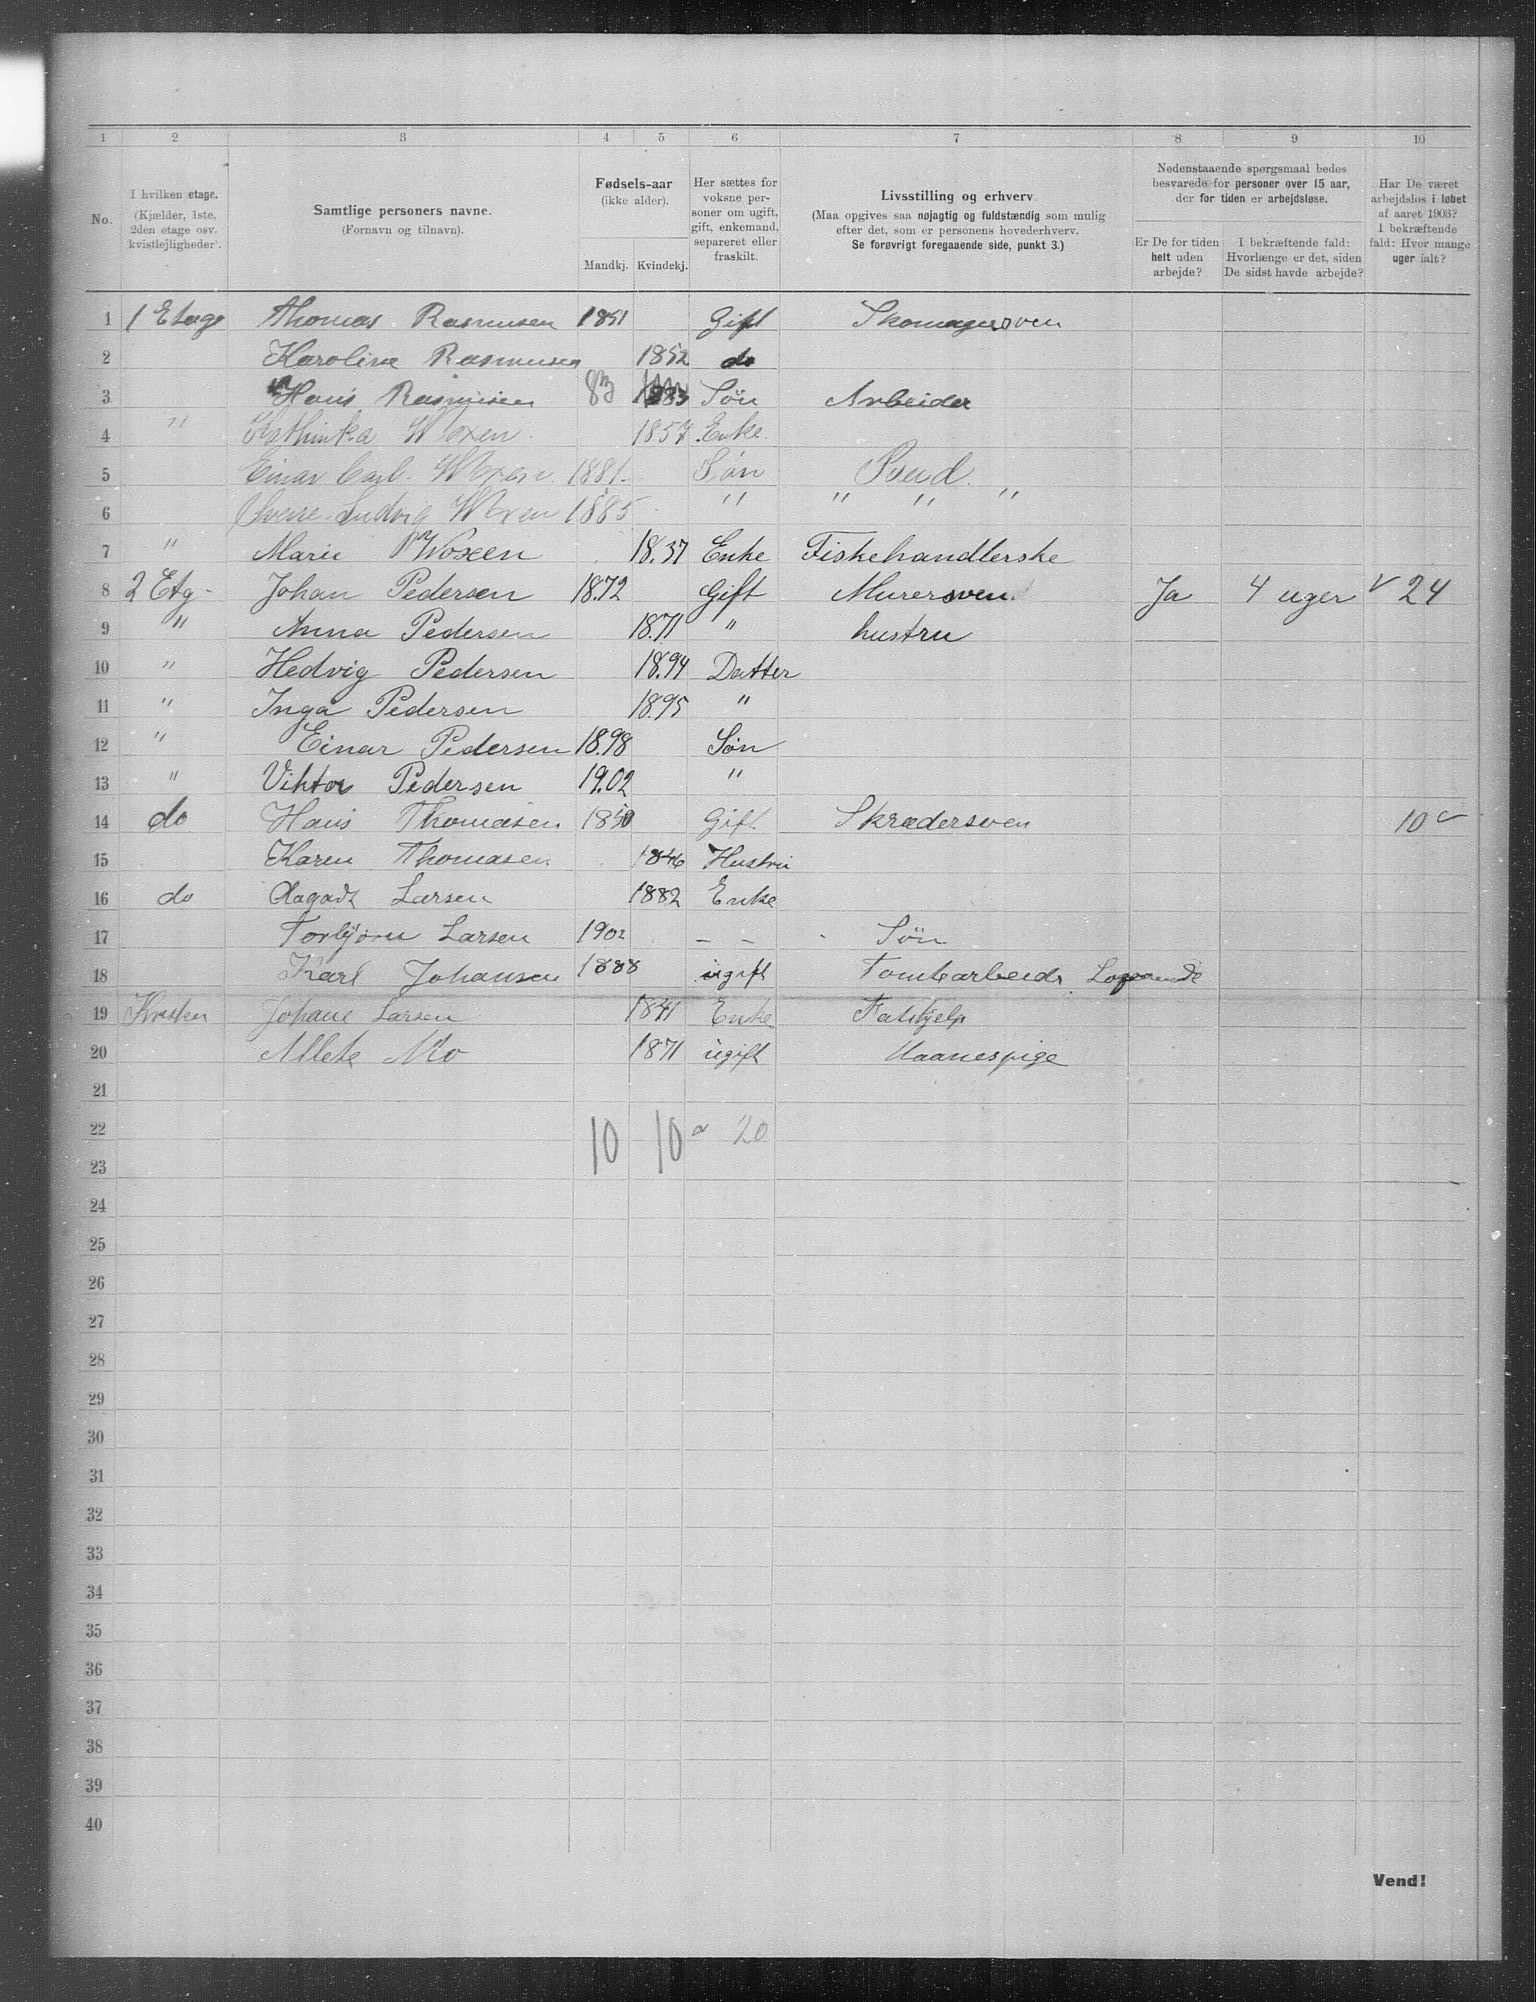 1 2 3 4 5 6 7 8 9 10
No.
I hvilken etage. (Kjælder, 1ste, 2den etage osv. kvistlejligheder).
Samtlige personers navne. (Fornavn og tilnavn).
Fødsels-aar (ikke alder). Mandkj. Kvindekj.
Her sættes for voksne personer om ugift, gift, enkemand, separeret eller fraskilt.
Livsstilling og erhverv. (Maa opgives saa nøjagtig og fuldstændig som mulig efter det, som er personens hovederhverv. Se forøvrigt foregaaende side, punkt 3.)
Nedenstaaende spørgsmaal bedes besvarede for personer over 15 aar, der for tiden er arbejdsløse.
Er De for tiden helt uden arbejde?
I bekræftende fald: Hvorlænge er det, siden De sidst havde arbejde?
Har De været arbejdsløs i løbet af aaret 1903? I bekræftende fald: Hvor mange uger ialt?
1 1 Etage Thomas Rasmusen 1851 Gift Skomagersven
2 Karoline Rasmusen 1852 do
3 Hans Rasmusen 83 1883 Søn Arbeider
4 " Woxen 1857 Enke
5 Einar Carl. Woxen 1881. Søn
6 Sverre Ludvig Woxen 1885 " " " "
7 " Marie Woxen 18.37 Enke Fiskehandlerske
8 2 Etg. Johan Pedersen 18.72 Gift Murersven Ja 4 uger v 24
9 " Anna Pedersen 18.71 " hustru
10 " Hedvig Pedersen 18.94 Datter
11 " Inga Pedersen 18.95 "
12 " Einar Pedersen 18.98 Søn
13 " Viktor Pedersen 19.02 "
14 do Hans Thomasen 1850 Gift Skrædersven 10 v
15 Karen Thomasen 1846 Hustru
16 do Aagadt Larsen 1882 Enke
17 Torbjørn Larsen 1902 - - Søn
18 Karl Johansen 1888 ugift Tomtearbeide Logerende
19 Kvisten Johane Larsen 1841 Enke Fattihjelp
20 Allete Mo 1871 ugift
21
22 10 10 20
23
24
25
26
27
28
29
30
31
32
33
34
35
36
37
38
39
40
Vend!